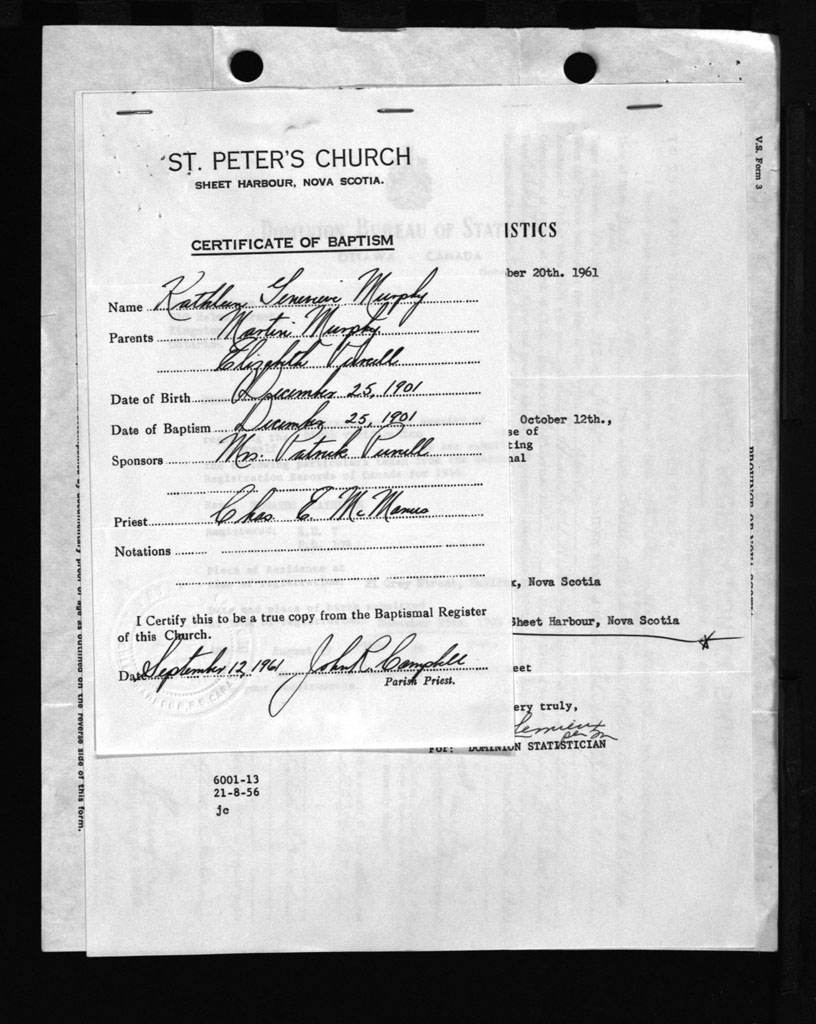 ST. PETER'S CHURCH
SHEET HARBOUR, NOVA SCOTIA.
CERTIFICATE OF BAPTISM
Name Kathleen Genevieve Murphy
Parents Martin Murphy
Elizabeth Purcell
Date of Birth December 25, 1901
Date of Baptism December 25, 1901
Sponsors Mrs. Patrick Purcell
Priest Chas. E. McManus
Notations
I Certify this to be a true copy from the Baptismal Register
of this Church.
Date September 12, 1961 John R. Campbell
Parish Priest.
V.S. Form 3
DOMINION BUREAU OF STATISTICS
OTTAWA - CANADA
ber 20th. 1961
October 12th.,
se of
ting
nal
Registration Records of Canada for
Place of Residence at
, Nova Scotia
Sheet Harbour, Nova Scotia
eet
ery truly,
Lemieux
For: DOMINION STATISTICIAN
6001-13
21-8-56
jc
documentary proof of age as outlined on the reverse side of this form.